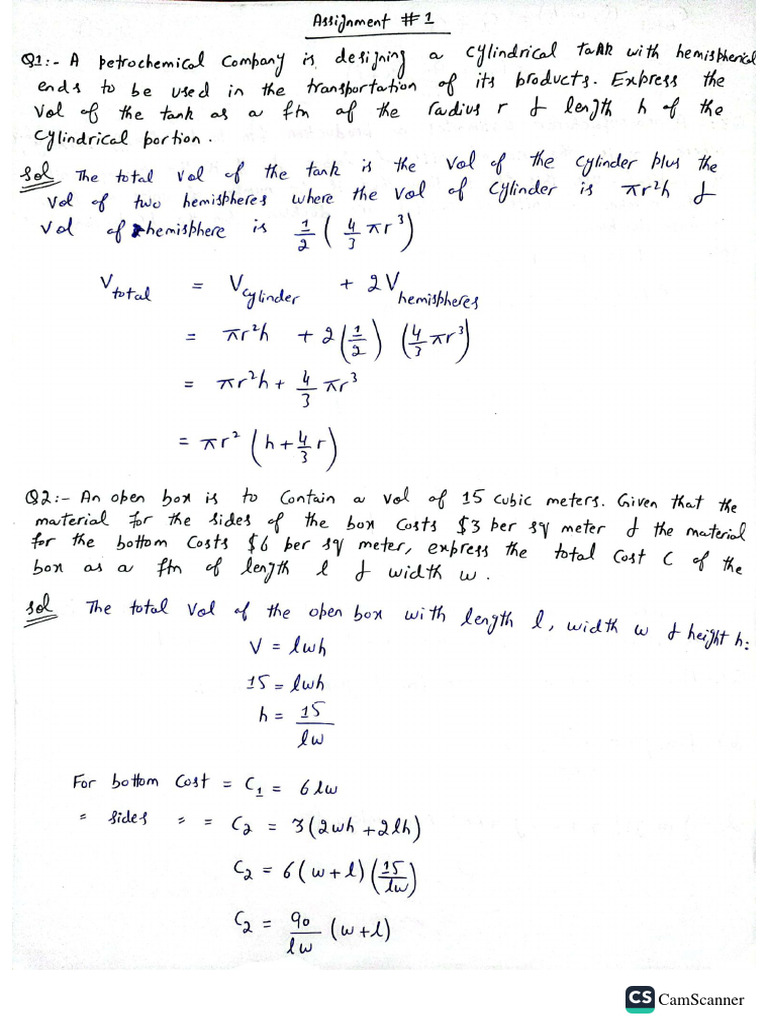 Assignment #1
Q1:- A petrochemical company is designing a cylindrical tank with hemispherical
ends to be used in the transportation of its products. Express the
vol of the tank as a ftn of the radius r & length h of the
cylindrical portion.
Sol The total vol of the tank is the vol of the cylinder plus the
vol of two hemispheres where the vol of cylinder is πr²h &
vol of hemisphere is 1/2 (4/3 πr³)
V_total = V_cylinder + 2V_hemispheres
= πr²h + 2(1/2) (4/3 πr³)
= πr²h + 4/3 πr³
= πr² (h + 4/3 r)
Q2:- An open box is to contain a vol of 15 cubic meters. Given that the
material for the sides of the box costs $3 per sq meter & the material
for the bottom costs $6 per sq meter, express the total cost C of the
box as a ftn of length l & width w.
Sol The total vol of the open box with length l, width w & height h:
V = lwh
15 = lwh
h = 15/lw
For bottom cost = C₁ = 6lw
= sides = = C₂ = 3(2wh + 2lh)
C₂ = 6(w + l)(15/lw)
C₂ = 90/lw (w + l)
CS CamScanner